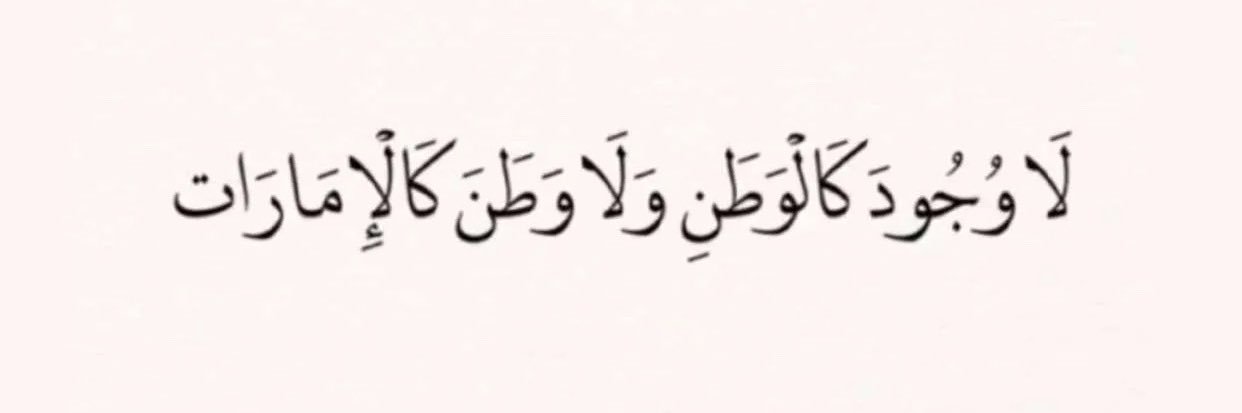 لَا وُجُودَ كَالْوَطَنِ وَلَا وَطَنَ كَالْإِمَارَات